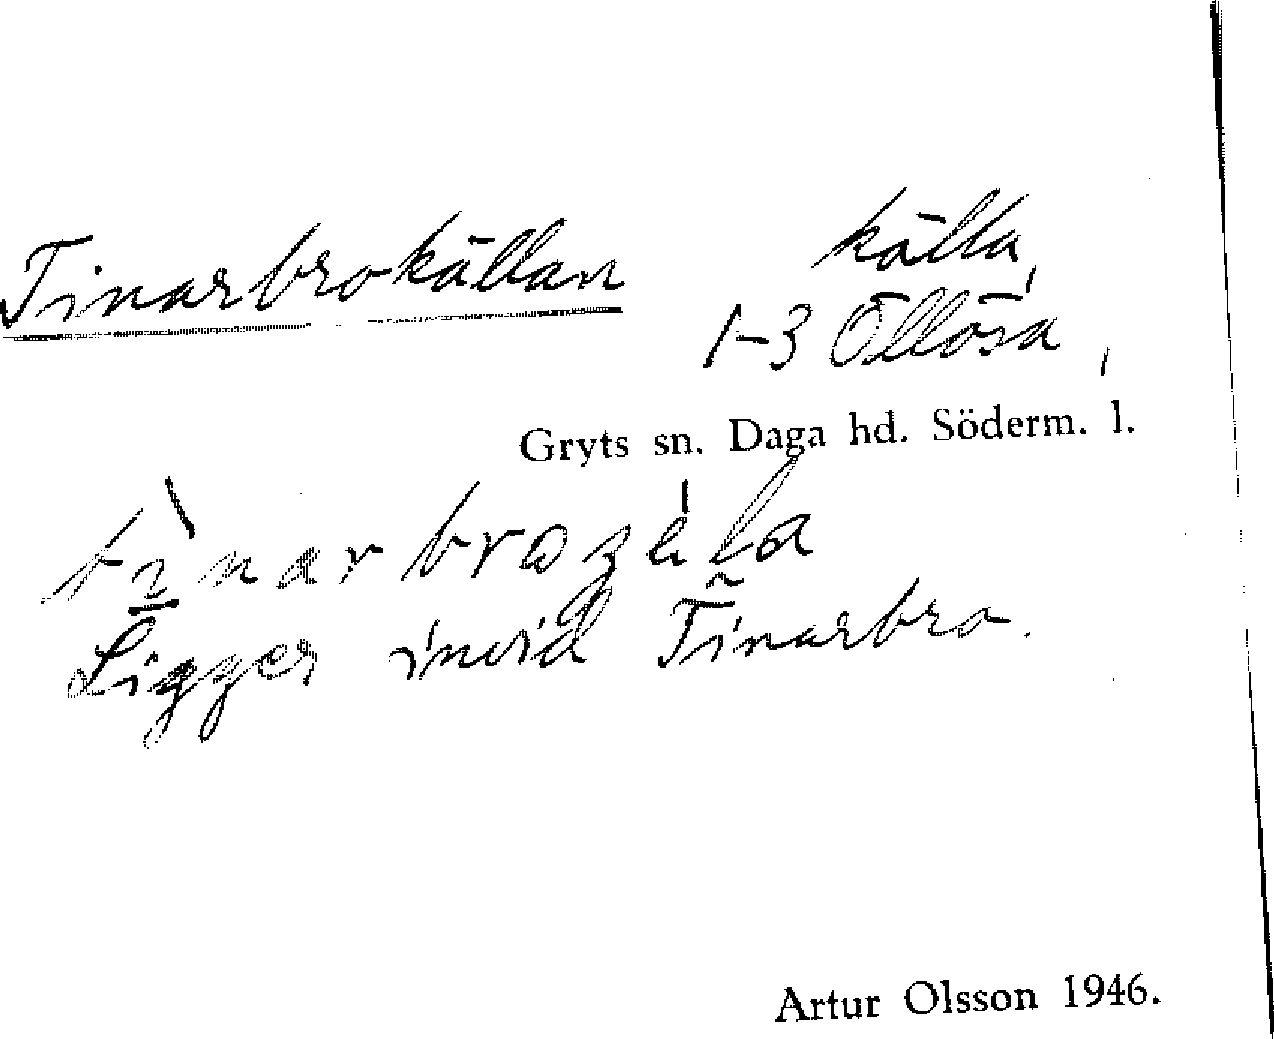 Tinarbrokällan källa,
1-3 Öllösa,
Gryts sn. Daga hd. Söderm. l.
Ligger invid Tinarbro.
Artur Olsson 1946.